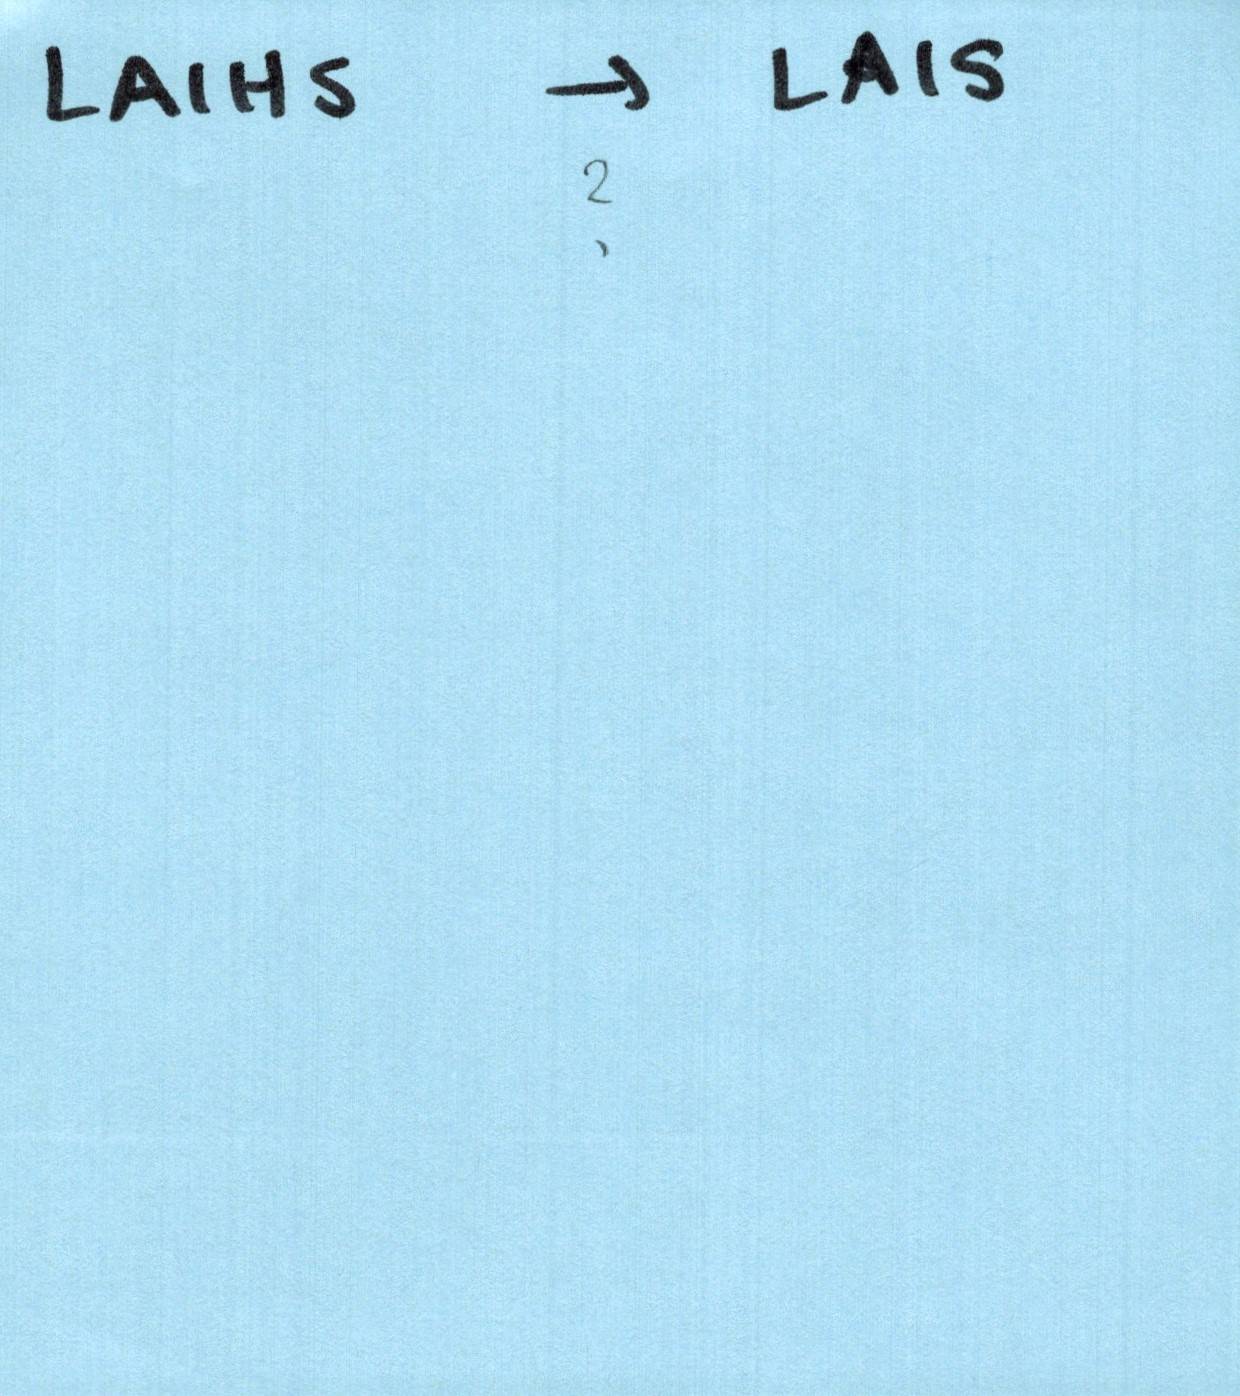 LAIHS → LAIS
2